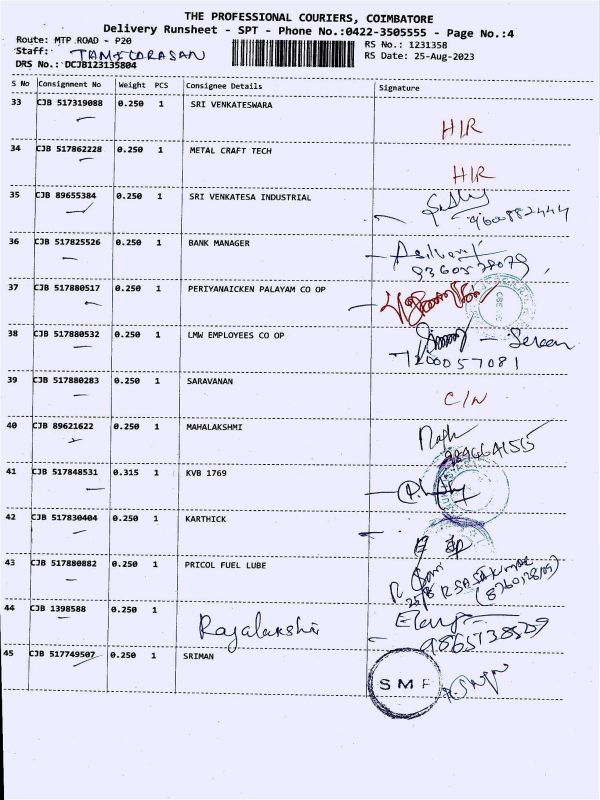 THE PROFESSIONAL COURIERS, COIMBATORE
Delivery Runsheet - SPT - Phone No.:0422-3505555 - Page No.:4
Route: MTP ROAD - P20 RS No.: 1231358
Staff: RS Date: 25-Aug-2023
DRS No.: DCJB123135804
S No Consignment No Weight PCS Consignee Details Signature
33 CJB 517319088 0.250 1 SRI VENKATESWARA
H/R
34 CJB 517862228 0.250 1 METAL CRAFT TECH
H/R
35 CJB 89655384 0.250 1 SRI VENKATESA INDUSTRIAL
36 CJB 517825526 0.250 1 BANK MANAGER
37 CJB 517880517 0.250 1 PERIYANAICKEN PALAYAM CO OP
38 CJB 517880532 0.250 1 LMW EMPLOYEES CO OP
7200057081
39 CJB 517880283 0.250 1 SARAVANAN
C/N
40 CJB 89621622 0.250 1 MAHALAKSHMI
41 CJB 517848531 0.315 1 KVB 1769
42 CJB 517830404 0.250 1 KARTHICK
43 CJB 517880882 0.250 1 PRICOL FUEL LUBE
44 CJB 1398588 0.250 1
Rajalakshmi
45 CJB 517749507 0.250 1 SRIMAN
SMF